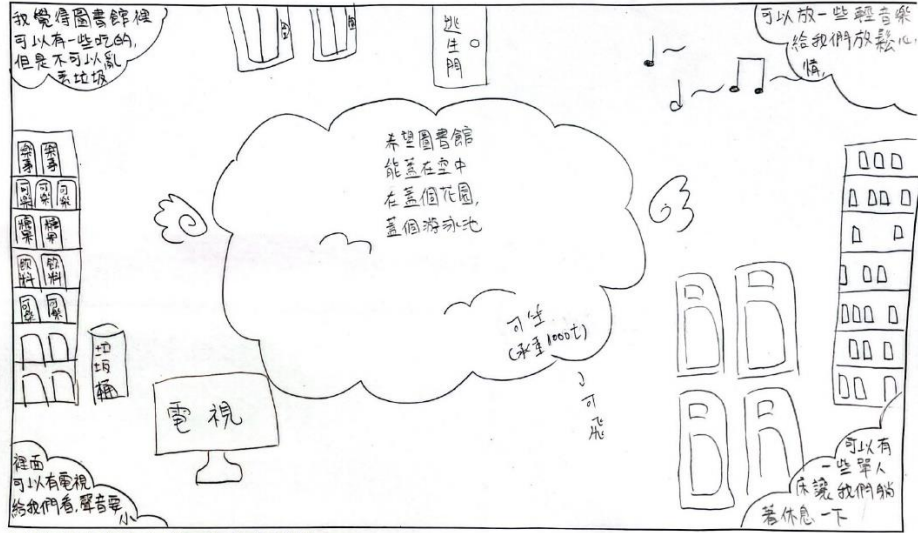 我覺得圖書館裡
可以有一些吃的,
但是不可以亂
丟垃圾
逃生門
可以放一些輕音樂
給我們放鬆心
情,
希望圖書館
能蓋在空中
在蓋個花園,
蓋個游泳池
樂事 樂事
可樂 可樂 可樂
糖果 糖果
飲料 飲料
可樂 可樂
垃圾桶
電視
可坐
(承重1000t)
可飛
裡面
可以有電視
給我們看,聲音要
小
可以有
一些單人
床讓我們躺
著休息一下